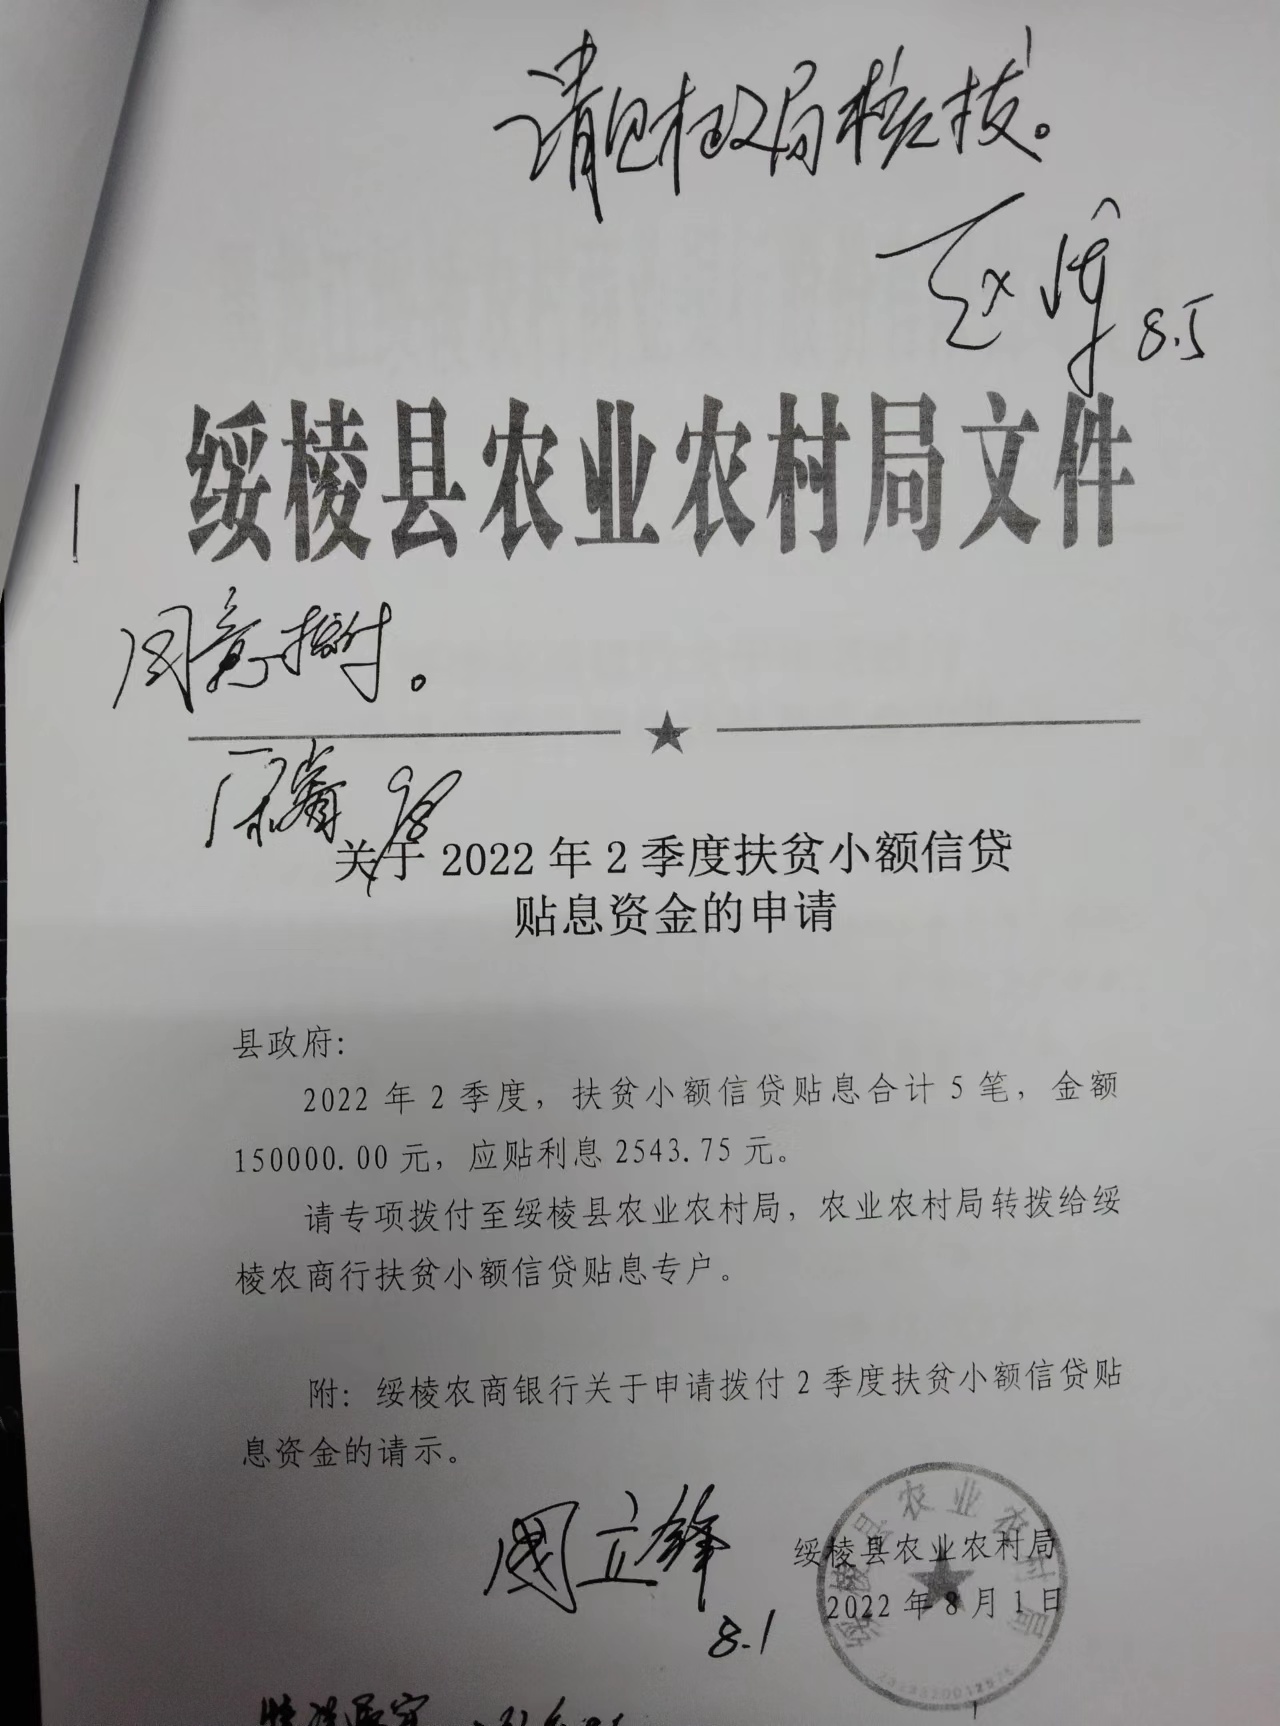 请财政局核拨。
赵 8.5
绥棱县农业农村局文件
同意拨付。
关于2022年2季度扶贫小额信贷
贴息资金的申请
县政府：
2022年2季度，扶贫小额信贷贴息合计5笔，金额
150000.00元，应贴利息2543.75元。
请专项拨付至绥棱县农业农村局，农业农村局转拨给绥
棱农商行扶贫小额信贷贴息专户。
附：绥棱农商银行关于申请拨付2季度扶贫小额信贷贴
息资金的请示。
國立锋
8.1
绥棱县农业农村局
2022年8月1日
绥棱县农业农村局